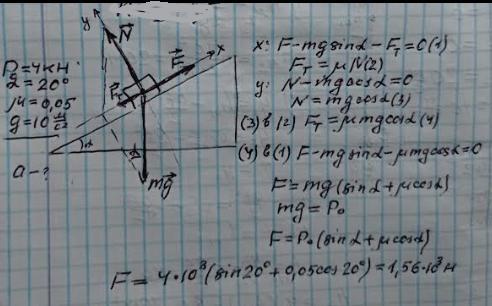 y
N⃗
F⃗
x
F⃗т
α
α
mg⃗
P=4кН
α=20°
μ=0,05
g=10 м/с²
a-?
x: F-mgsinα-Fт=0(1)
Fт=μN(2)
y: N-mgcosα=0
N=mgcosα(3)
(3)в(2) Fт=μmgcosα(4)
(4)в(1) F-mgsinα-μmgcosα=0
F=mg(sinα+μcosα)
mg=P₀
F=P₀(sinα+μcosα)
F=4·10³(sin20°+0,05cos20°)=1,56·10³Н